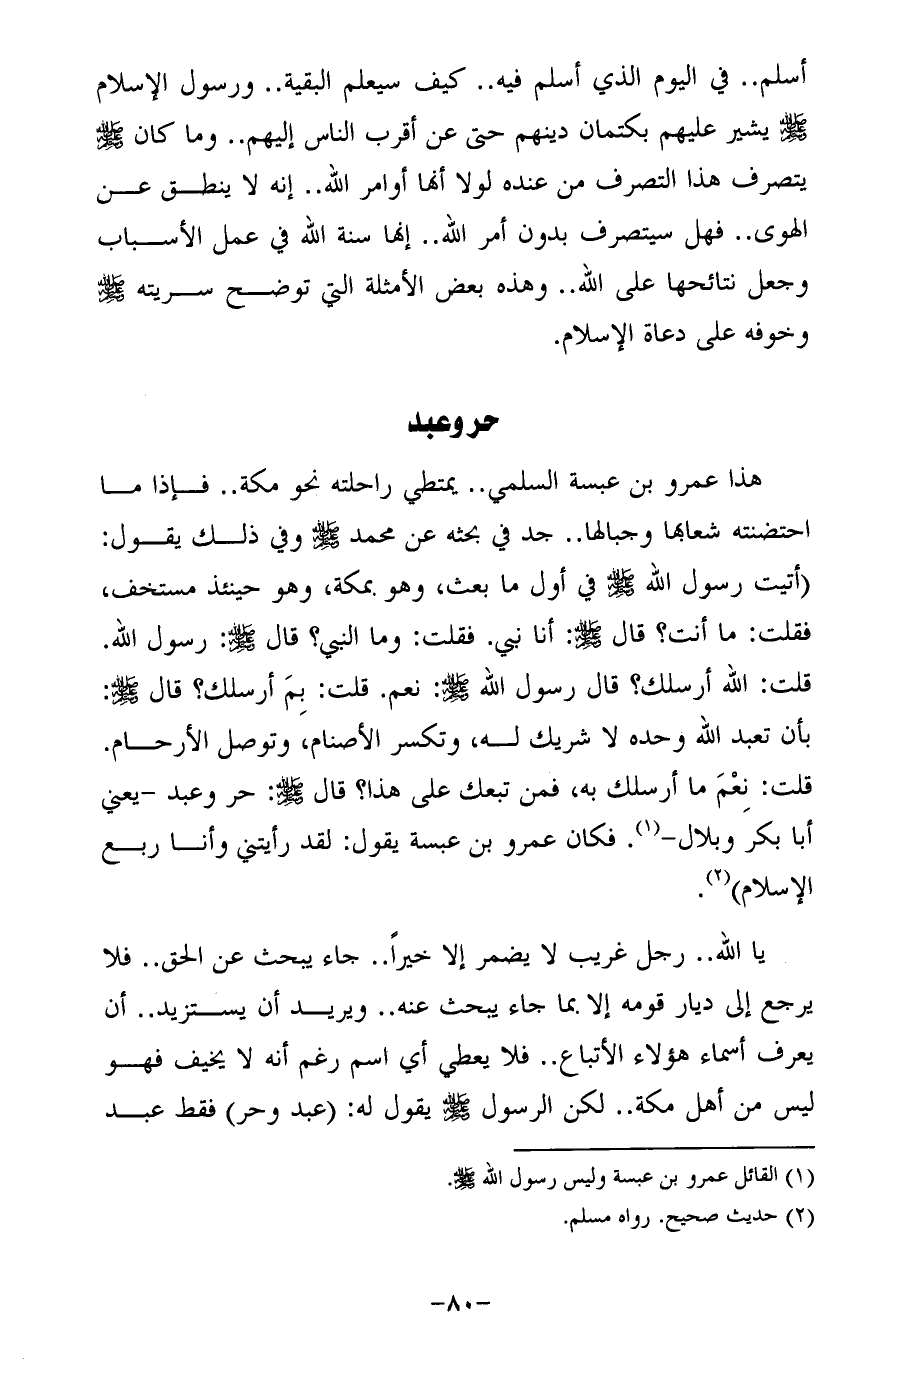 أسلم.. في اليوم الذي أسلم فيه.. كيف سيعلم البقية.. ورسول الإسلام
ﷺ يشير عليهم بكتمان دينهم حتى عن أقرب الناس إليهم.. وما كان ﷺ
يتصرف هذا التصرف من عنده لولا أنها أوامر الله.. إنه لا ينطق عن
الهوى.. فهل سيتصرف بدون أمر الله.. إنها سنة الله في عمل الأسباب
وجعل نتائجها على الله.. وهذه بعض الأمثلة التي توضح سريته ﷺ
وخوفه على دعاة الإسلام.
حر وعبد
هذا عمرو بن عبسة السلمي.. يمتطي راحلته نحو مكة.. فإذا ما
احتضنته شعابها وجبالها.. جد في بحثه عن محمد ﷺ وفي ذلك يقول:
(أتيت رسول الله ﷺ في أول ما بعث، وهو بمكة، وهو حينئذ مستخف،
فقلت: ما أنت؟ قال ﷺ: أنا نبي. فقلت: وما النبي؟ قال ﷺ: رسول الله.
قلت: الله أرسلك؟ قال رسول الله ﷺ: نعم. قلت: بِمَ أرسلك؟ قال ﷺ:
بأن تعبد الله وحده لا شريك له، وتكسر الأصنام، وتوصل الأرحام.
قلت: نِعْمَ ما أرسلك به، فمن تبعك على هذا؟ قال ﷺ: حر وعبد –يعني
أبا بكر وبلال–(١). فكان عمرو بن عبسة يقول: لقد رأيتني وأنا ربع
الإسلام)(٢).
يا الله.. رجل غريب لا يضمر إلا خيراً.. جاء يبحث عن الحق.. فلا
يرجع إلى ديار قومه إلا بما جاء يبحث عنه.. ويريد أن يستزيد.. أن
يعرف أسماء هؤلاء الأتباع.. فلا يعطي أي اسم رغم أنه لا يخيف فهو
ليس من أهل مكة.. لكن الرسول ﷺ يقول له: (عبد وحر) فقط عبد
(١) القائل عمرو بن عبسة وليس رسول الله ﷺ.
(٢) حديث صحيح. رواه مسلم.
–٨٠–